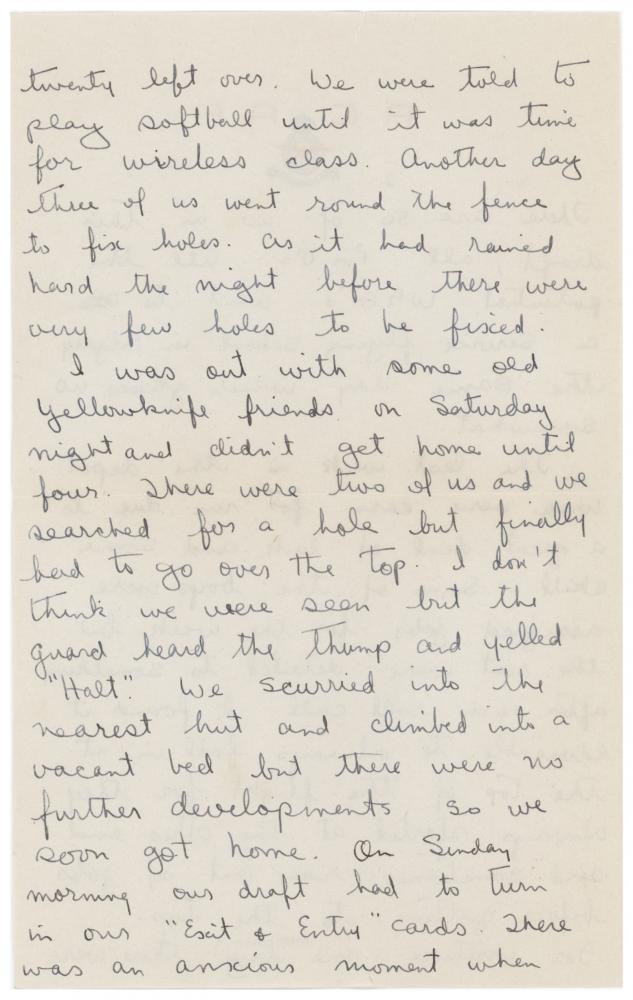 twenty left over. We were told to
play softball until it was time
for wireless class. Another day
three of us went round the fence
to fix holes. As it had rained
hard the night before there were
very few holes to be fixed.
I was out with some old
Yellowknife friends on Saturday
night and didn't get home until
four. There were two of us and we
searched for a hole but finally
had to go over the top. I don't
think we were seen but the
guard heard the thump and yelled
"Halt". We scurried into the
nearest hut and climbed into a
vacant bed but there were no
further developments so we
soon got home. On Sunday
morning our draft had to turn
in our "Exit & Entry" cards. There
was an anxious moment when